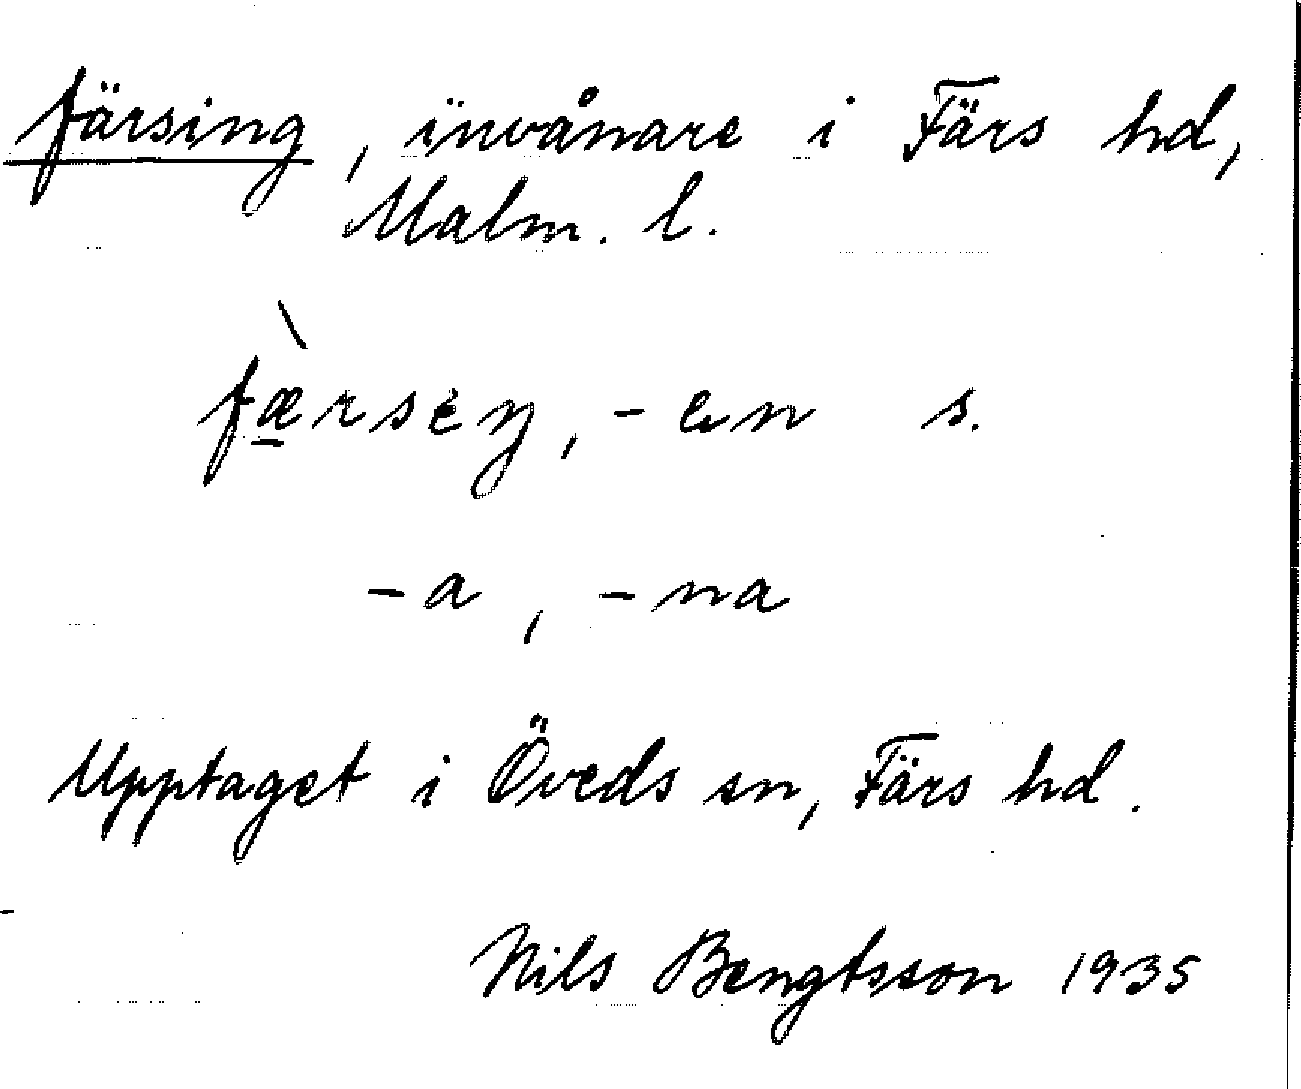 färsing, invånare i Färs hd,
Malm. l.
fæ̱̀rsėŋ, -en s.
-a, -na
Upptaget i Öveds sn, Färs hd.
Nils Bengtsson 1935